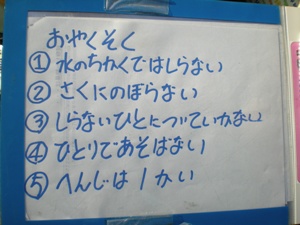 おやくそく
① 水のちかくではしらない
② さくにのぼらない
③ しらないひとについていかない
④ ひとりであそばない
⑤ へんじは1かい